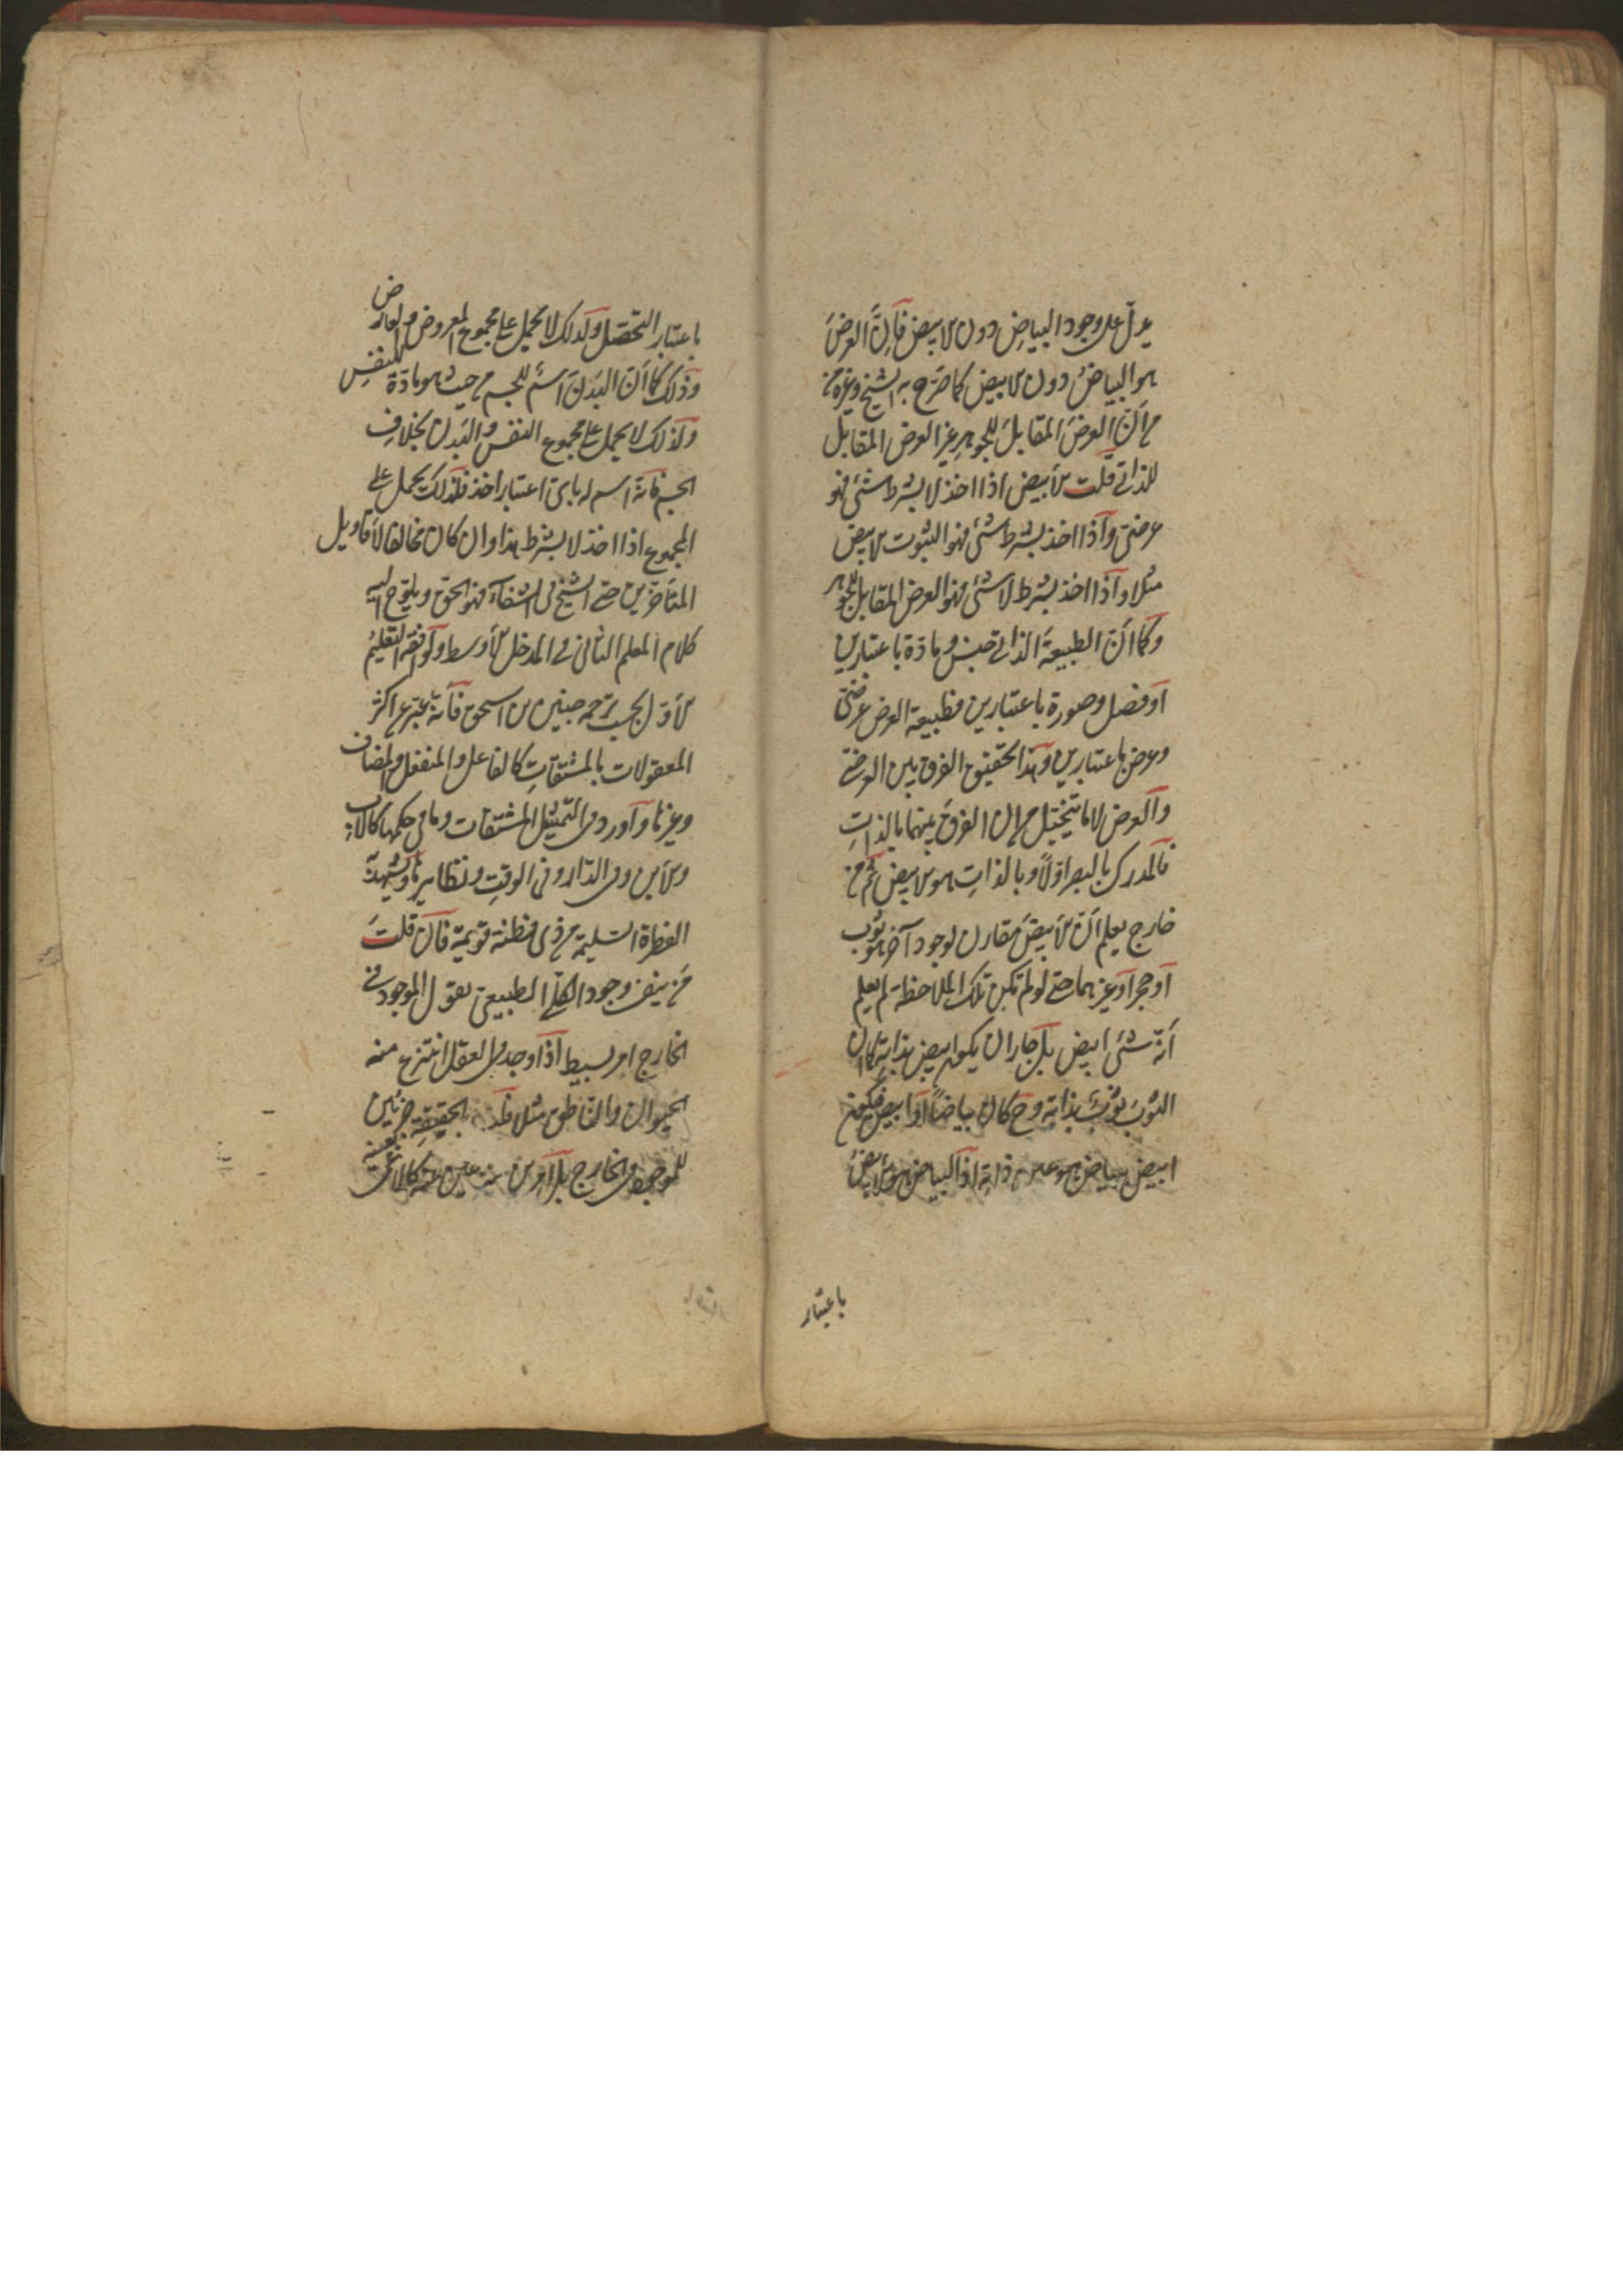 يدلّ على وجود البياضِ دون الابيض فاِنَّ العرضَ
هو البياضُ دون الابيض كما صَرّح به الشيخ وغيره من
من اَنّ العرضَ المقابلَ للجوهر غير العرض المقابل
للذاتي قلت الاَبيض اذا اخذ لا بشرط شئ فهو
عرضىّ وآذا اخذ بشرط شئ فهو الثوب الابيض
مثلا وآذا اخذ بشرط لا شئ فهو العرض المقابل للجوهر
وكما اَنّ الطبيعةَ الذاتى جنس ومادّة باعتبارين
اَو فصل وصورة باعتبارين فطبيعة العرض عرضىّ
وعرض باعتبارين وهذا تحقيق الفرق بين العرضى
والعرض لا ما يتخيّل من ان الفرقَ بينهما بالذاتِ
فالمدرك بالبصر اوّلاً وبالذاتِ هو الابيض ثم من
خارج يعلم اَنّ الاَبيضَ مقارن لوجود آخر هو ثوب
آو حجر آو غيرهما حتى لو لم تكن تلك الملاحظة لم يعلم
اَنّه شئ ابيض بل جاز ان يكون ابيض بذاته كما ان
الثوبَ ثوبٌ بذاته وح كان بياضاً وابيض فيكون
ابيض ببياض هو عين ذاته اذ البياض هو الابيضُ
باعتبار
باعتبار التحصّل ولذلك لا يحمل على مجموع المعروض والعارض
وذلك كما اَنّ البَدنَ اسمٌ للجسم من حيث هو مادّة للنفسِ
ولذلك لا يحمل على مجموع النفس والبَدن بخلافِ
الجسم فانّه اسم له باىّ اعتبار اخذ فلذلك يحمل على
المجموع اذا اخذ لا بشرط هذا وان كان مخالفا لاَقاويل
المتاَخرين حتى الشيخ فى الشفاء فهو الحق ويلوّح اليه
كلام المعلم الثانى فى المدخل الاَوسط ولَو افقه التعليمُ
الاَوّل بحسب ترجمه حنين بن اسحق فاَنّه عبّر عن اكثر
المعقولات بالمشتقّاتِ كالفاعل والمنفعل والمضاف
وغيرها وآورد فى التمثيل المشتقات وما فى حكمها كالاب
والاَبن وفى الدّار وفى الوقتِ ونظايرها ويشهد به
الفطرة السّليمة من ذى فطنة قويمة فاَن قلتَ
مَن ينفى وجود الكلّى الطبيعىّ يقول الموجود فى
الخارج امر بسيط اذَا وجد فى العقل انتزع منه
الحيوان والناطق مثلا بالحقيقةِ جزئين
للموجود فى الخارج بل